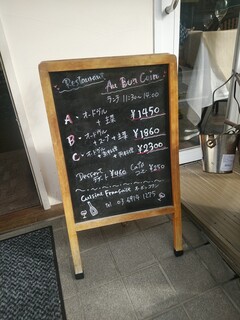 Restaurant
Au Bon Coin
ランチ 11:30〜14:00
A・オードブル
+ 主菜 ¥1450
B・オードブル
+スープ+主菜 ¥1860
C・オードブル ¥2300
Dessert Café
デザート ¥450 コーヒー ¥250
Cuisine Française オーボンコアン
tel 03